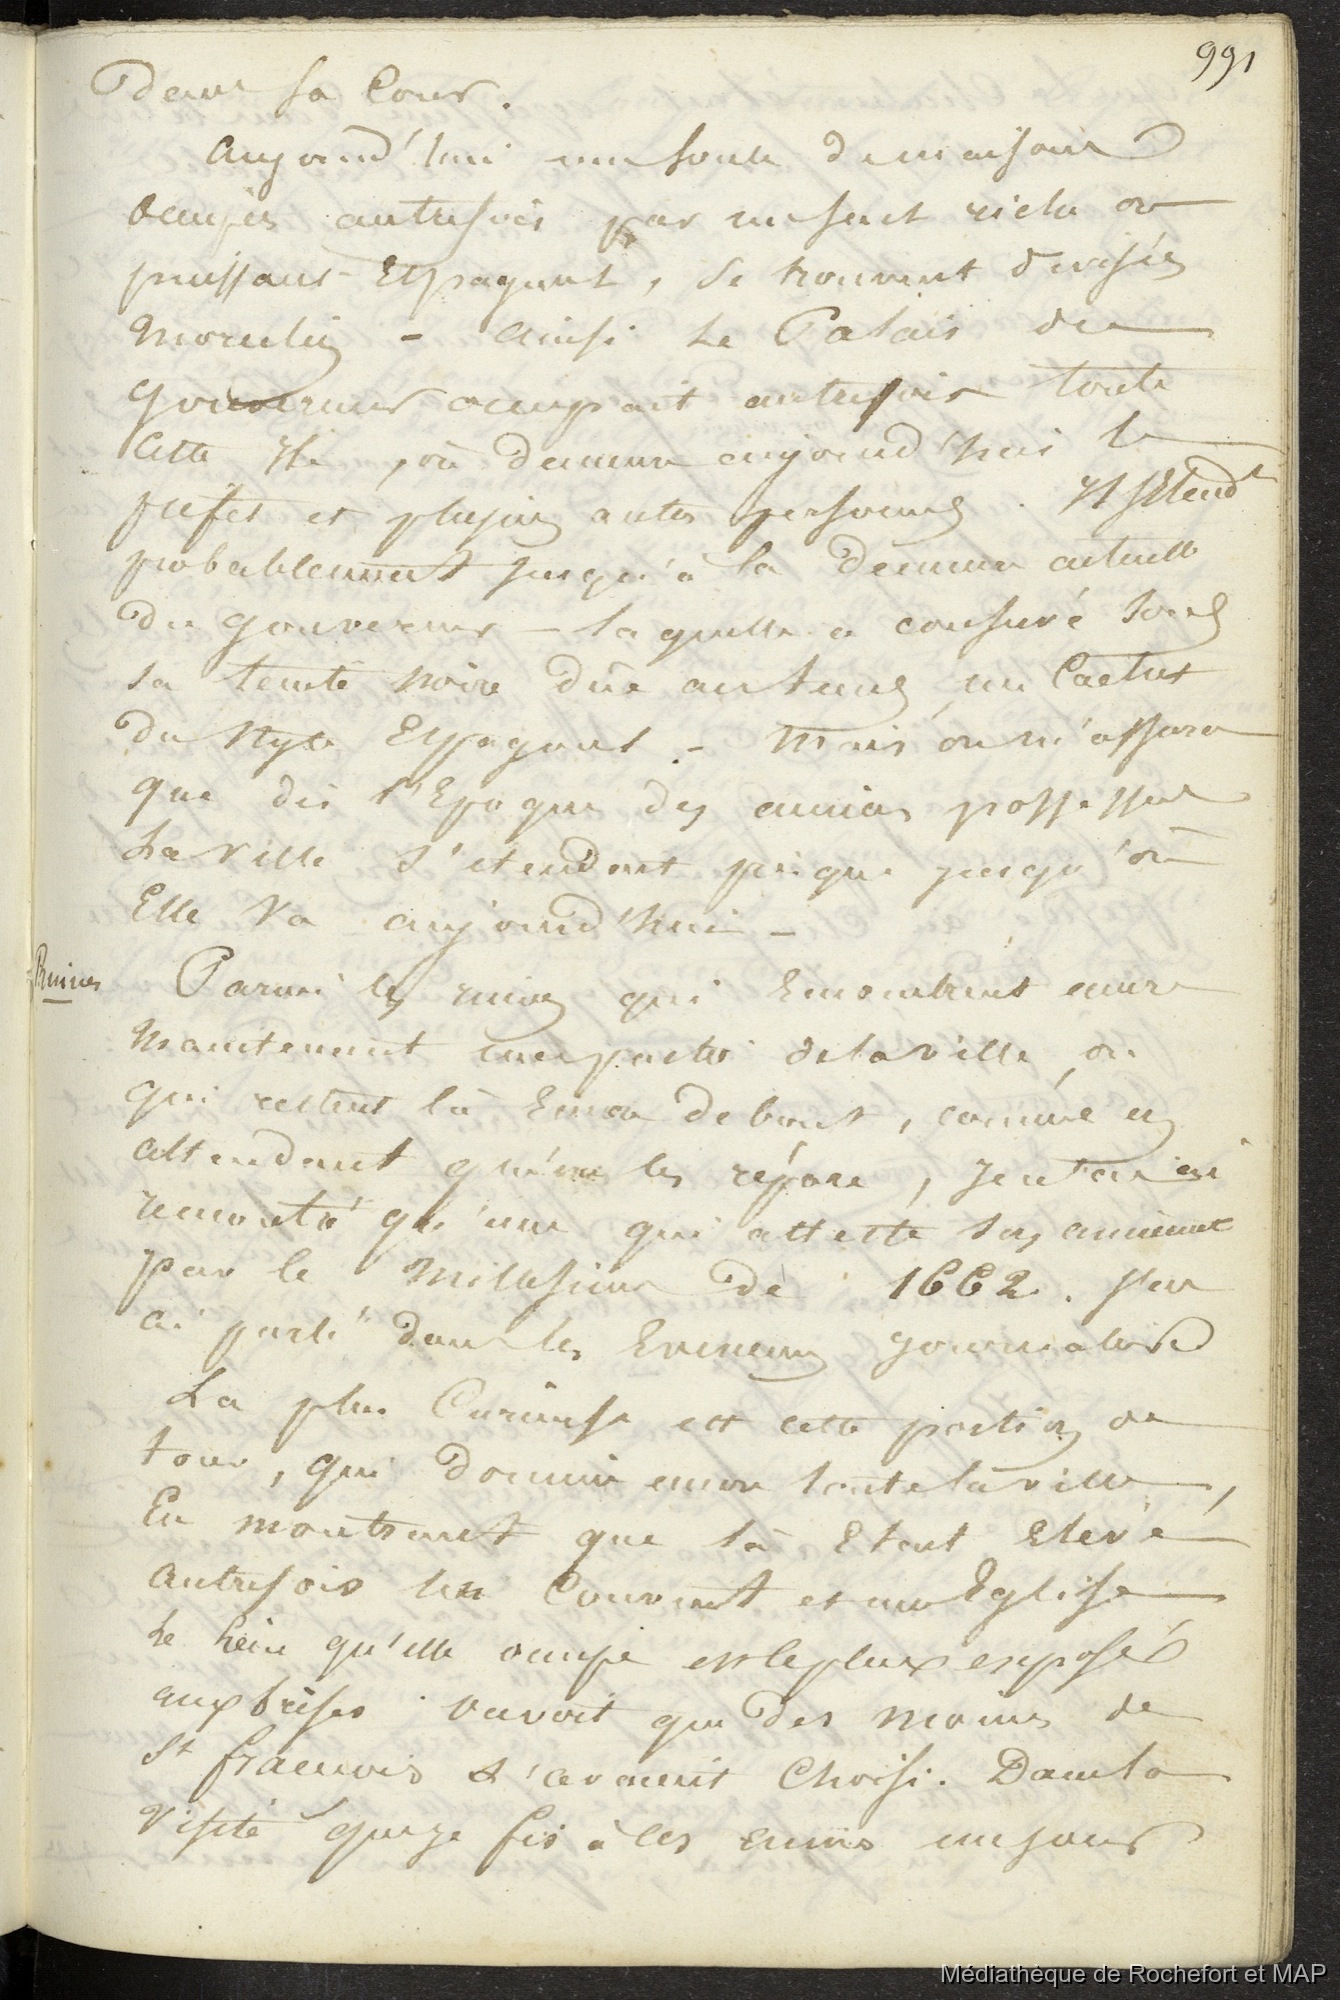 991
dans sa Cour.
Aujourd'hui une foule de maisons
occupées autrefois par un seul riche ou
puissant Espagnol, se trouvent divisées
Morcelées - Ainsi le Palais du
Gouverneur occupait autrefois toute
cette Ile, où demeure aujourd'hui le
préfet et plusieurs autres personnes. Il s'étend
probablement jusqu'à la demeure actuelle
du gouverneur - laquelle a conservé sous
sa teinte noire dûe au tems, un Cachet
du style Espagnol - Mais on m'assura
que dès l'Epoque des anciens possesseurs
La Ville s'étendait presque jusqu'où
Elle va aujourd'hui -
Ruines
Parmi les ruines qui Encombrent encore
Maintenant une partie de la Ville, ou
qui restent là Encore debout, comme en
attendant qu'on les répare, je n'en ai
rencontré qu'une qui atteste son ancienneté
par le Millesime de 1662. j'en
ai parlé dans les Evenemens journaliers
La plus Curieuse est cette portion de
tour, qui domine encore toute la ville,
En montrant que là Etait Elevé
autrefois un Couvent et une Eglise
Le lieu qu'elle occupe est le plus exposé
aux brises on voit que des moines de
St francois l'avaient Choisi. Dans la
Visite que je fis à ces ruines un jour
Médiathèque de Rochefort et MAP